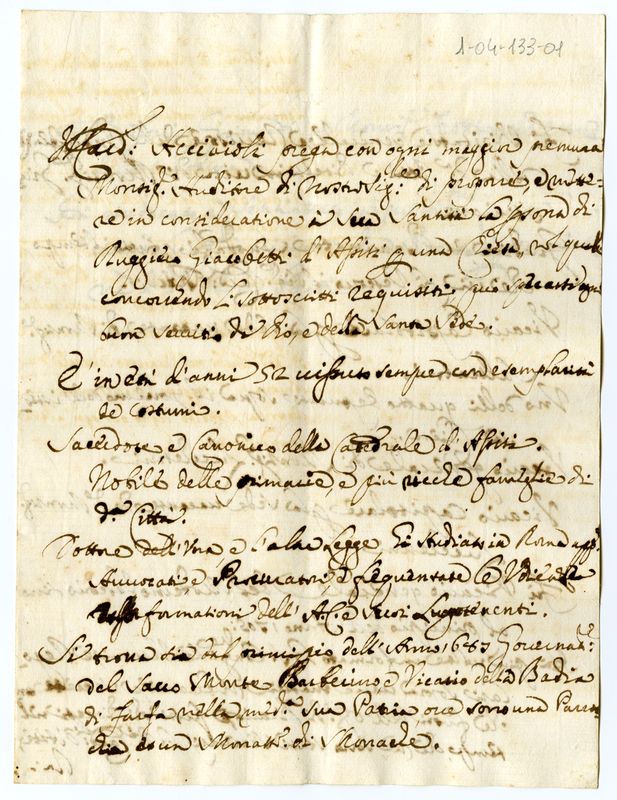 1-04-133-01
Il Card: Acciaioli prega con ogni maggior premura
Monsig.r Auditore di Nostro Sig.re di proporre, e mette-
re in consideratione à Sua Santità la psona di
Ruggiero Giacobetti d'Assisi p una Chiesa, nel quale
concorrendo li sottoscritti requisiti, può sperarsi ogni
buon servitio di Dio, e della Santa Sede.
E' in età d'anni 52 vissuto sempre con esemplarità
de costumi.
Sacerdote, e Canonico della Catedrale d'Assisi.
Nobile delle primarie, e più ricche famiglie di
d.a Città.
Dottore dell'Una, e l'altra Legge, hà studiato in Roma app.o
Avvocati, e Procuratori, e frequentate le Udienze
formationi dell'A.C. e suoi Luogotenenti.
Si trova sin dal principio dell'Anno 1685 Governat.re
del Sacro Monte Barberino, e Vicario della Badia
di Farfa nella med.a sua Patria ove sono una Paroc-
chia, et un Monast.o di Monache.